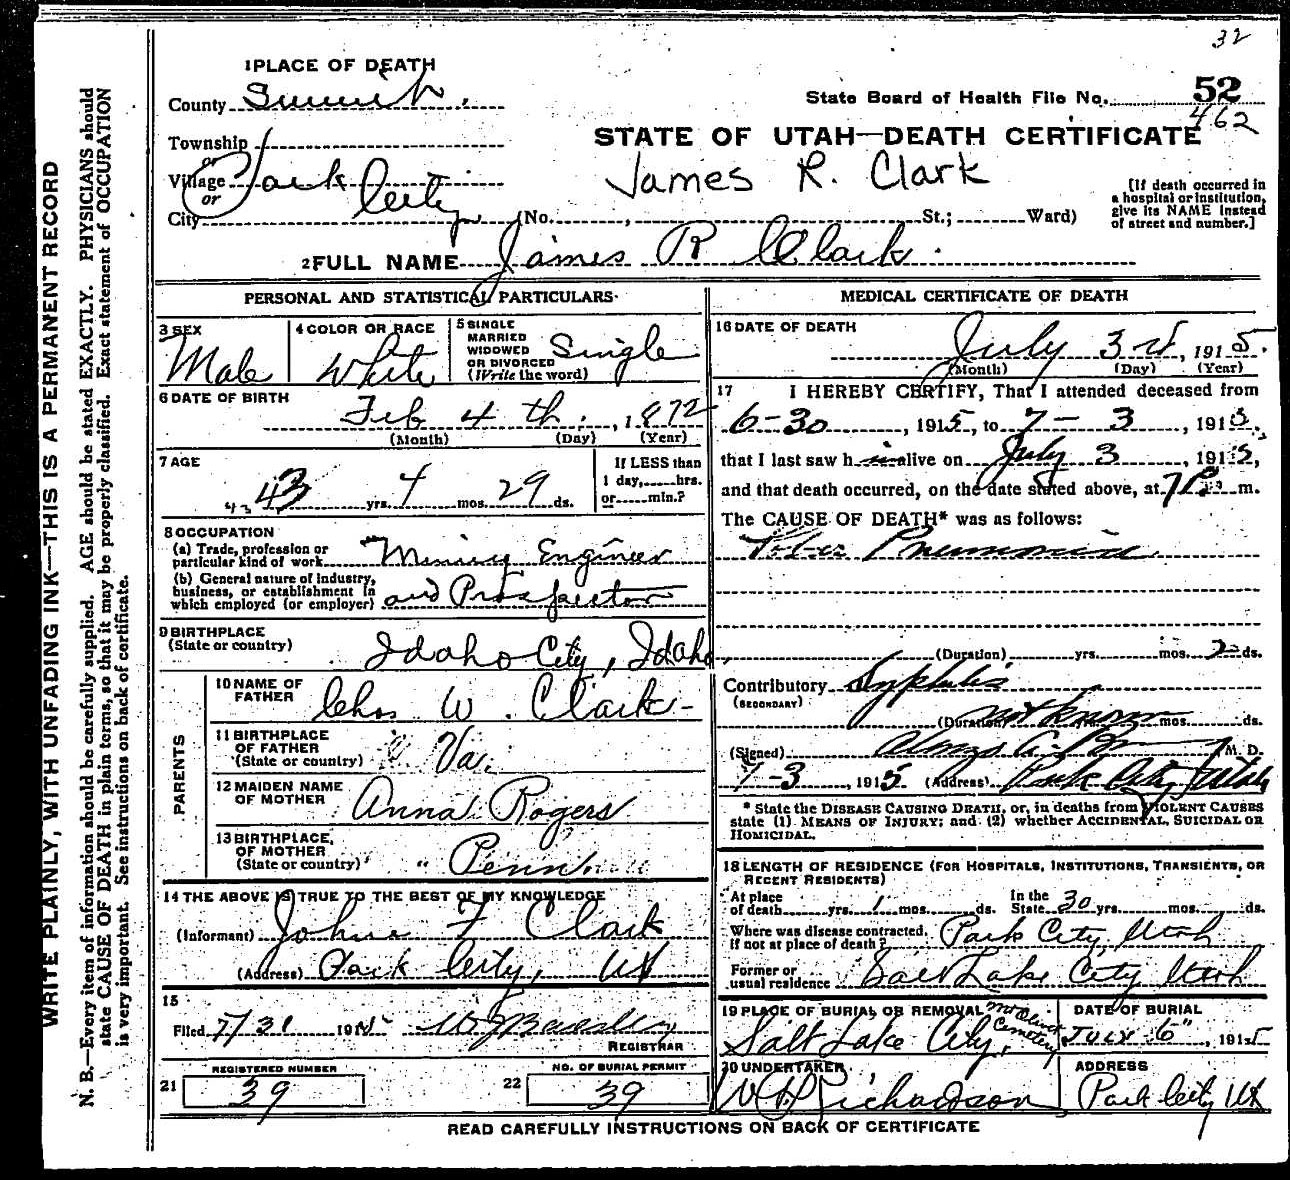 32
1 PLACE OF DEATH
County Summit.
State Board of Health File No. 52
462
Township
or
Village Park City
or
City (No. , St.; Ward)
STATE OF UTAH—DEATH CERTIFICATE
James R. Clark
[If death occurred in
a hospital or institution,
give its NAME instead
of street and number.]
2 FULL NAME James R Clark.
PERSONAL AND STATISTICAL PARTICULARS
3 SEX
Male
4 COLOR OR RACE
White
5 SINGLE
MARRIED
WIDOWED
OR DIVORCED
(Write the word)
Single
6 DATE OF BIRTH
Feb 4th, 1872
(Month) (Day) (Year)
7 AGE
43 43 yrs. 4 mos. 29 ds.
If LESS than
1 day, hrs.
or min.?
8 OCCUPATION
(a) Trade, profession or
particular kind of work Mining Engineer
(b) General nature of industry,
business, or establishment in
which employed (or employer) and Prospector
9 BIRTHPLACE
(State or country) Idaho City, Idaho
PARENTS
10 NAME OF
FATHER Chas W. Clark
11 BIRTHPLACE
OF FATHER
(State or country) Va.
12 MAIDEN NAME
OF MOTHER Anna Rogers
13 BIRTHPLACE,
OF MOTHER
(State or country) " Penn.
14 THE ABOVE IS TRUE TO THE BEST OF MY KNOWLEDGE
(Informant) John F Clark
(Address) Park City, Ut
15
Filed 7/31 1915
REGISTRAR
REGISTERED NUMBER
21 39
NO. OF BURIAL PERMIT
22 39
MEDICAL CERTIFICATE OF DEATH
16 DATE OF DEATH
July 3rd, 1915.
(Month) (Day) (Year)
17 I HEREBY CERTIFY, That I attended deceased from
6-30, 1915, to 7-3, 1915,
that I last saw h im alive on July 3, 1915,
and that death occurred, on the date stated above, at 7 P. m.
The CAUSE OF DEATH* was as follows:
Lober Pneumonia
(Duration) yrs. mos. 2 ds.
Contributory Syphilis
(SECONDARY)
(Duration) not known mos. ds.
(Signed) M. D.
7-3, 1915 (Address) Park City Utah
* State the DISEASE CAUSING DEATH, or, in deaths from VIOLENT CAUSES
state (1) MEANS OF INJURY; and (2) whether ACCIDENTAL, SUICIDAL OR
HOMICIDAL.
18 LENGTH OF RESIDENCE (FOR HOSPITALS, INSTITUTIONS, TRANSIENTS, OR
RECENT RESIDENTS)
At place
of death yrs. 1 mos. ds.
In the
State 30 yrs. mos. ds.
Where was disease contracted,
if not at place of death? Park City, Utah
Former or
usual residence Salt Lake City Utah
19 PLACE OF BURIAL OR REMOVAL
Salt Lake City, Mt Olivet Cemetery
DATE OF BURIAL
July 6", 1915
20 UNDERTAKER
Richardson
ADDRESS
Park City Ut
READ CAREFULLY INSTRUCTIONS ON BACK OF CERTIFICATE
WRITE PLAINLY, WITH UNFADING INK—THIS IS A PERMANENT RECORD
N. B.—Every item of information should be carefully supplied. AGE should be stated EXACTLY. PHYSICIANS should
state CAUSE OF DEATH in plain terms, so that it may be properly classified. Exact statement of OCCUPATION
is very important. See instructions on back of certificate.